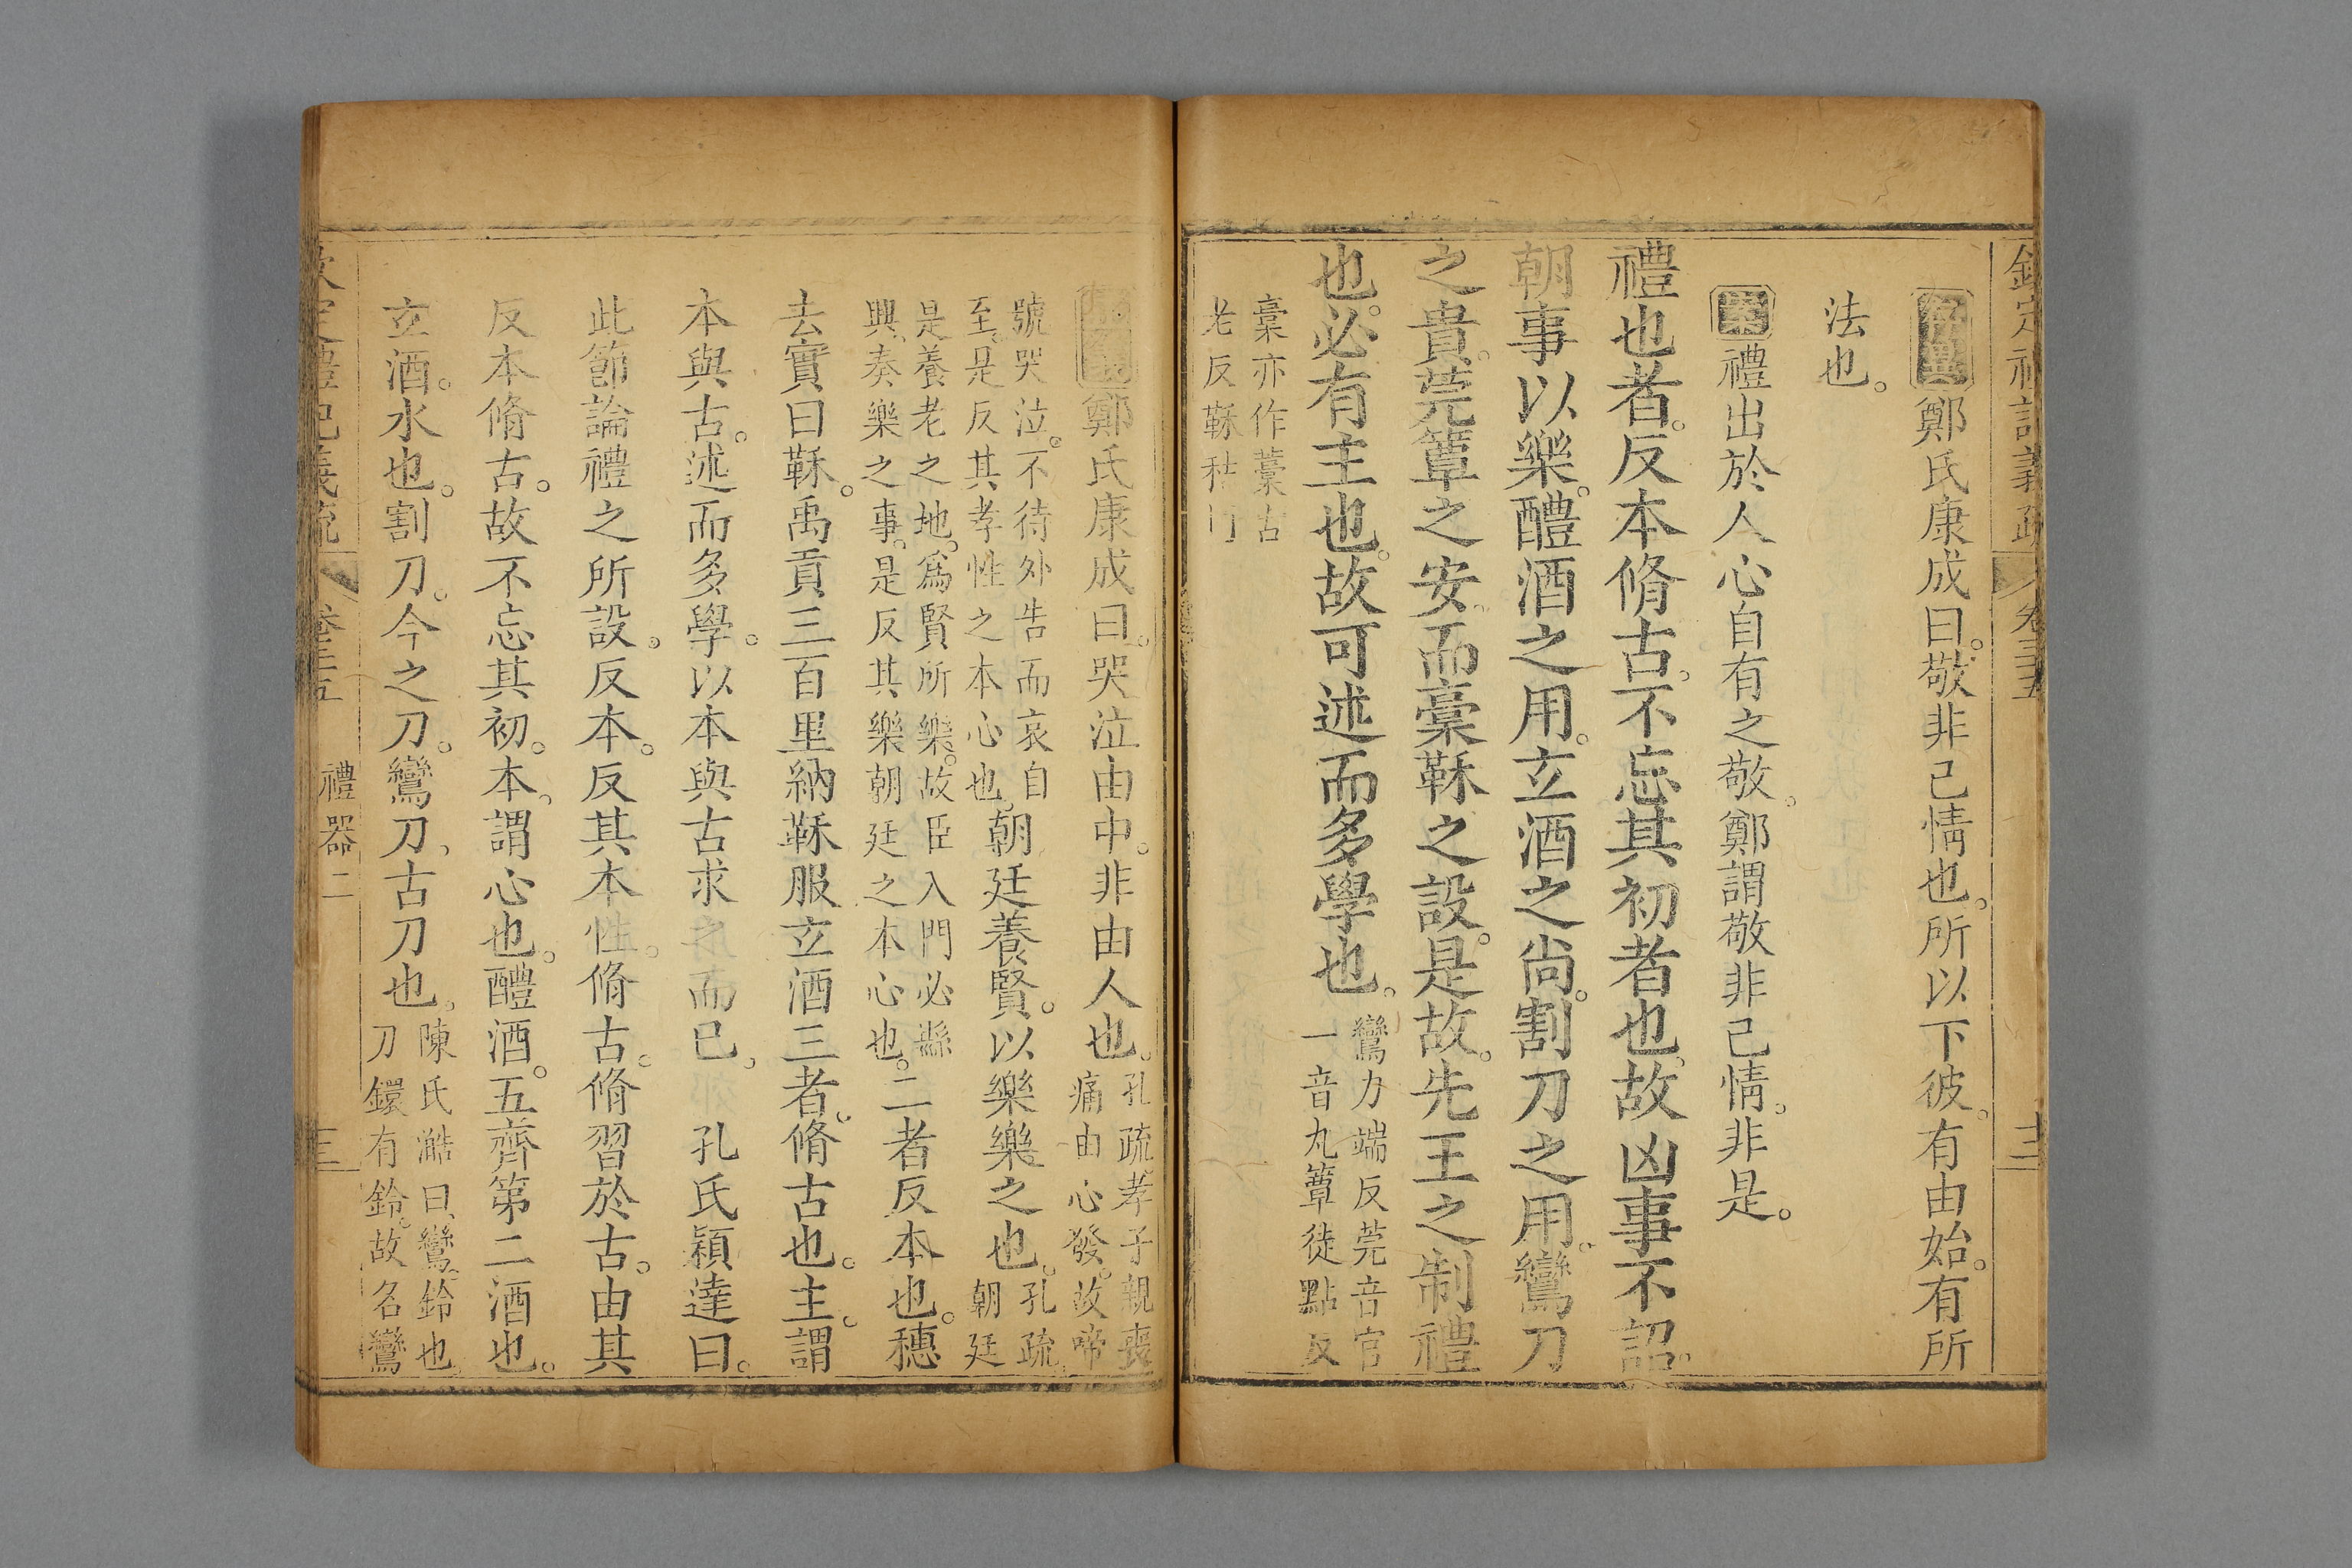 欽定禮記義疏 卷三十五 十三
存異鄭氏康成曰。敬非己情也。所以下彼。有由始。有所
法也。
案禮出於人心自有之敬。鄭謂敬非己情。非是。
禮也者。反本脩古。不忘其初者也。故凶事不詔。
朝事以樂。醴酒之用。玄酒之尚。割刀之用。鸞刀
之貴。莞簟之安。而槀鞂之設。是故。先王之制禮
也。必有主也。故可述而多學也。
鸞力端反莞音官
一音丸簟徒點反
槀亦作藁古
老反鞂秸
鄭氏康成曰。哭泣由中。非由人也。
孔疏。孝子親喪
痛由心發。故啼
號哭泣。不待外告而哀自
至。是反其孝性之本心也。
朝廷養賢。以樂樂之也。
孔疏。
朝廷
是養老之地。爲賢所樂。故臣入門必縣
興。奏樂之事。是反其樂朝廷之本心也。
二者反本也。穗
去實曰鞂。禹貢三百里納鞂服玄酒三者。脩古也。主。謂
本與古。述而多學。以本與古求之而已。孔氏穎達曰。
此節論禮之所設。反本。反其本性。脩古。脩習於古。由其
反本脩古。故不忘其初。本。謂心也。醴酒。五齊第二酒也。
玄酒。水也。割刀。今之刀。鸞刀、古刀也。
陳氏澔曰。鸞。鈴也。
刀鐶有鈴。故名鸞
欽定禮記義疏 卷三十五 禮器 二 十三